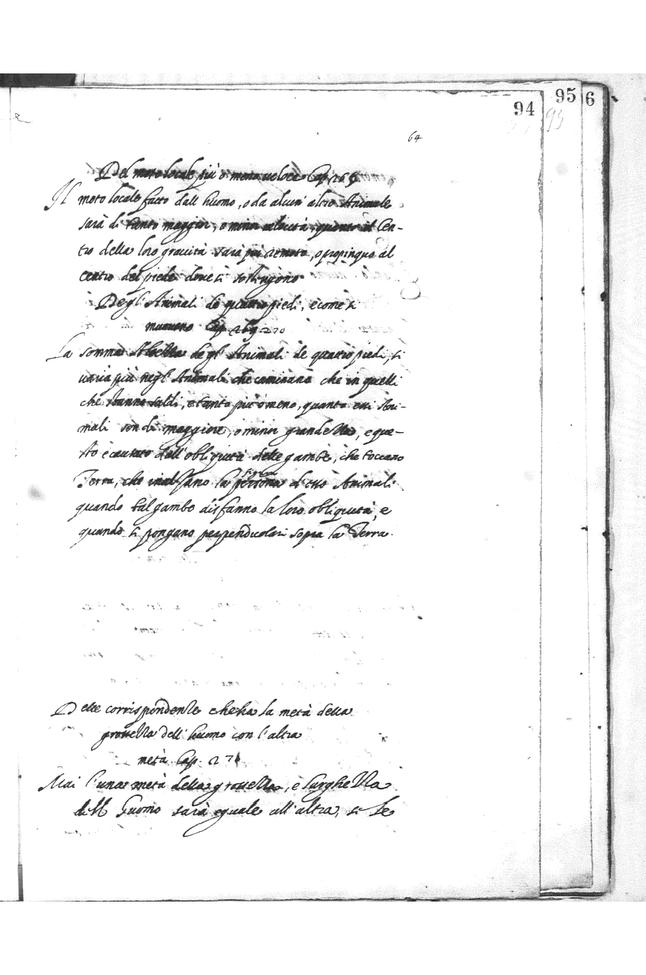 94
95
6
64
Del moto locale più o meno veloce Cap. 269
Il moto locale fatto dall' huomo, o da alcun' altro Animale
sarà di tanto maggior, o minor velocità, quanto il Cen-
tro della loro gravità sarà più remoto, o propinquo al
centro del piede dove si sostengono
Degl' Animali de quatro piedi, e come si
muovono Cap. 270
La somma Altezza degl' Animali de quatro piedi, si
varia più negl' Animali che caminano che in quelli
che stanno saldi, e tanto più o meno, quanto essi Ani-
mali son di maggiore, o minor grandezza, e que-
sto è causato dall' obliquità delle gambe, che toccano
Terra, che inalzano la figura d'essi Animali
quando tal gambe disfanno la loro obliquità, e
quando si pongano perpendicolari sopra la Terra.
Delle corrispondenze che ha la metà della
grossezza dell' huomo con l'altra
metà Cap. 271
Mai l'una metà della grossezza, e larghezza
dell' Huomo sarà eguale all' altra, se le